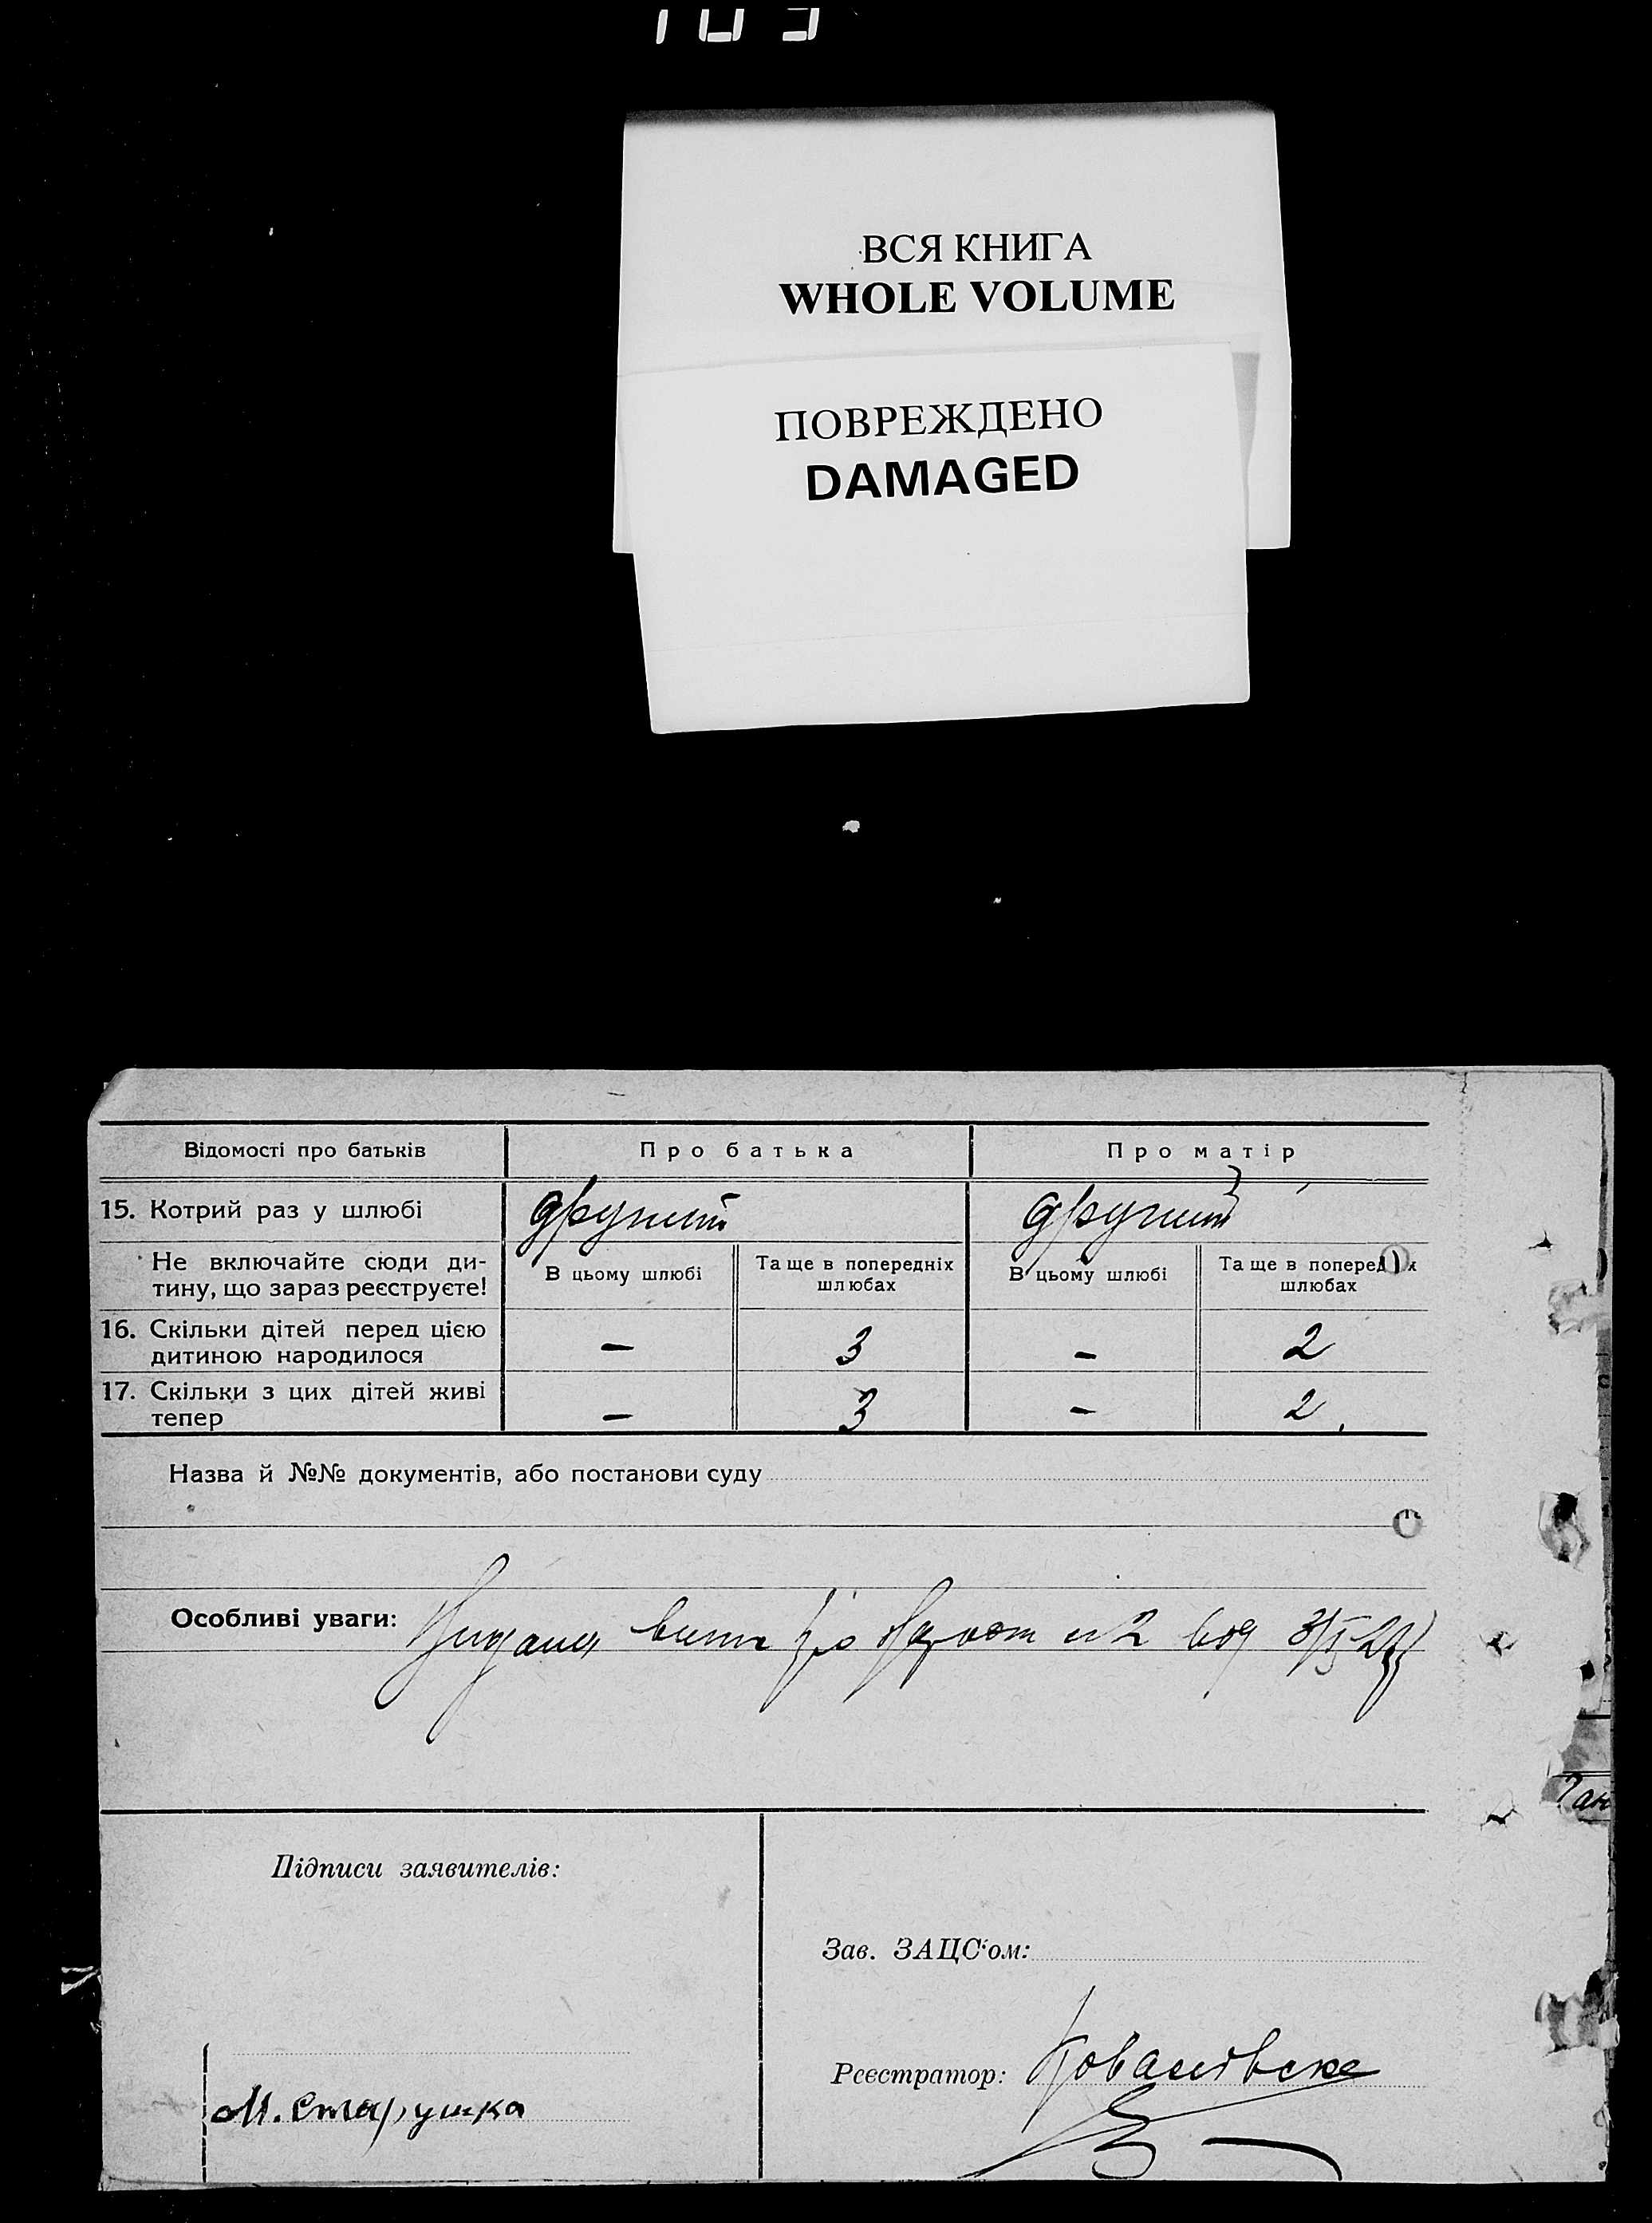 ВСЯ КНИГА
WHOLE VOLUME
ПОВРЕЖДЕНО
DAMAGED
Відомості про батьків
Про батька
Про матір
15. Котрий раз у шлюбі
другий
другий
Не включайте сюди ди-
тину, що зараз реєструєте!
В цьому шлюбі
Та ще в попередніх
шлюбах
В цьому шлюбі
Та ще в попередніх
шлюбах
16. Скільки дітей перед цією
дитиною народилося
—
3
—
2
17. Скільки з цих дітей живі
тепер
—
3
—
2
Назва й №№ документів, або постанови суду
Особливі уваги:
про № 2 від
Підписи заявителів:
Зав. ЗАЦС‘ом:
Реєстратор:
М. Старушка